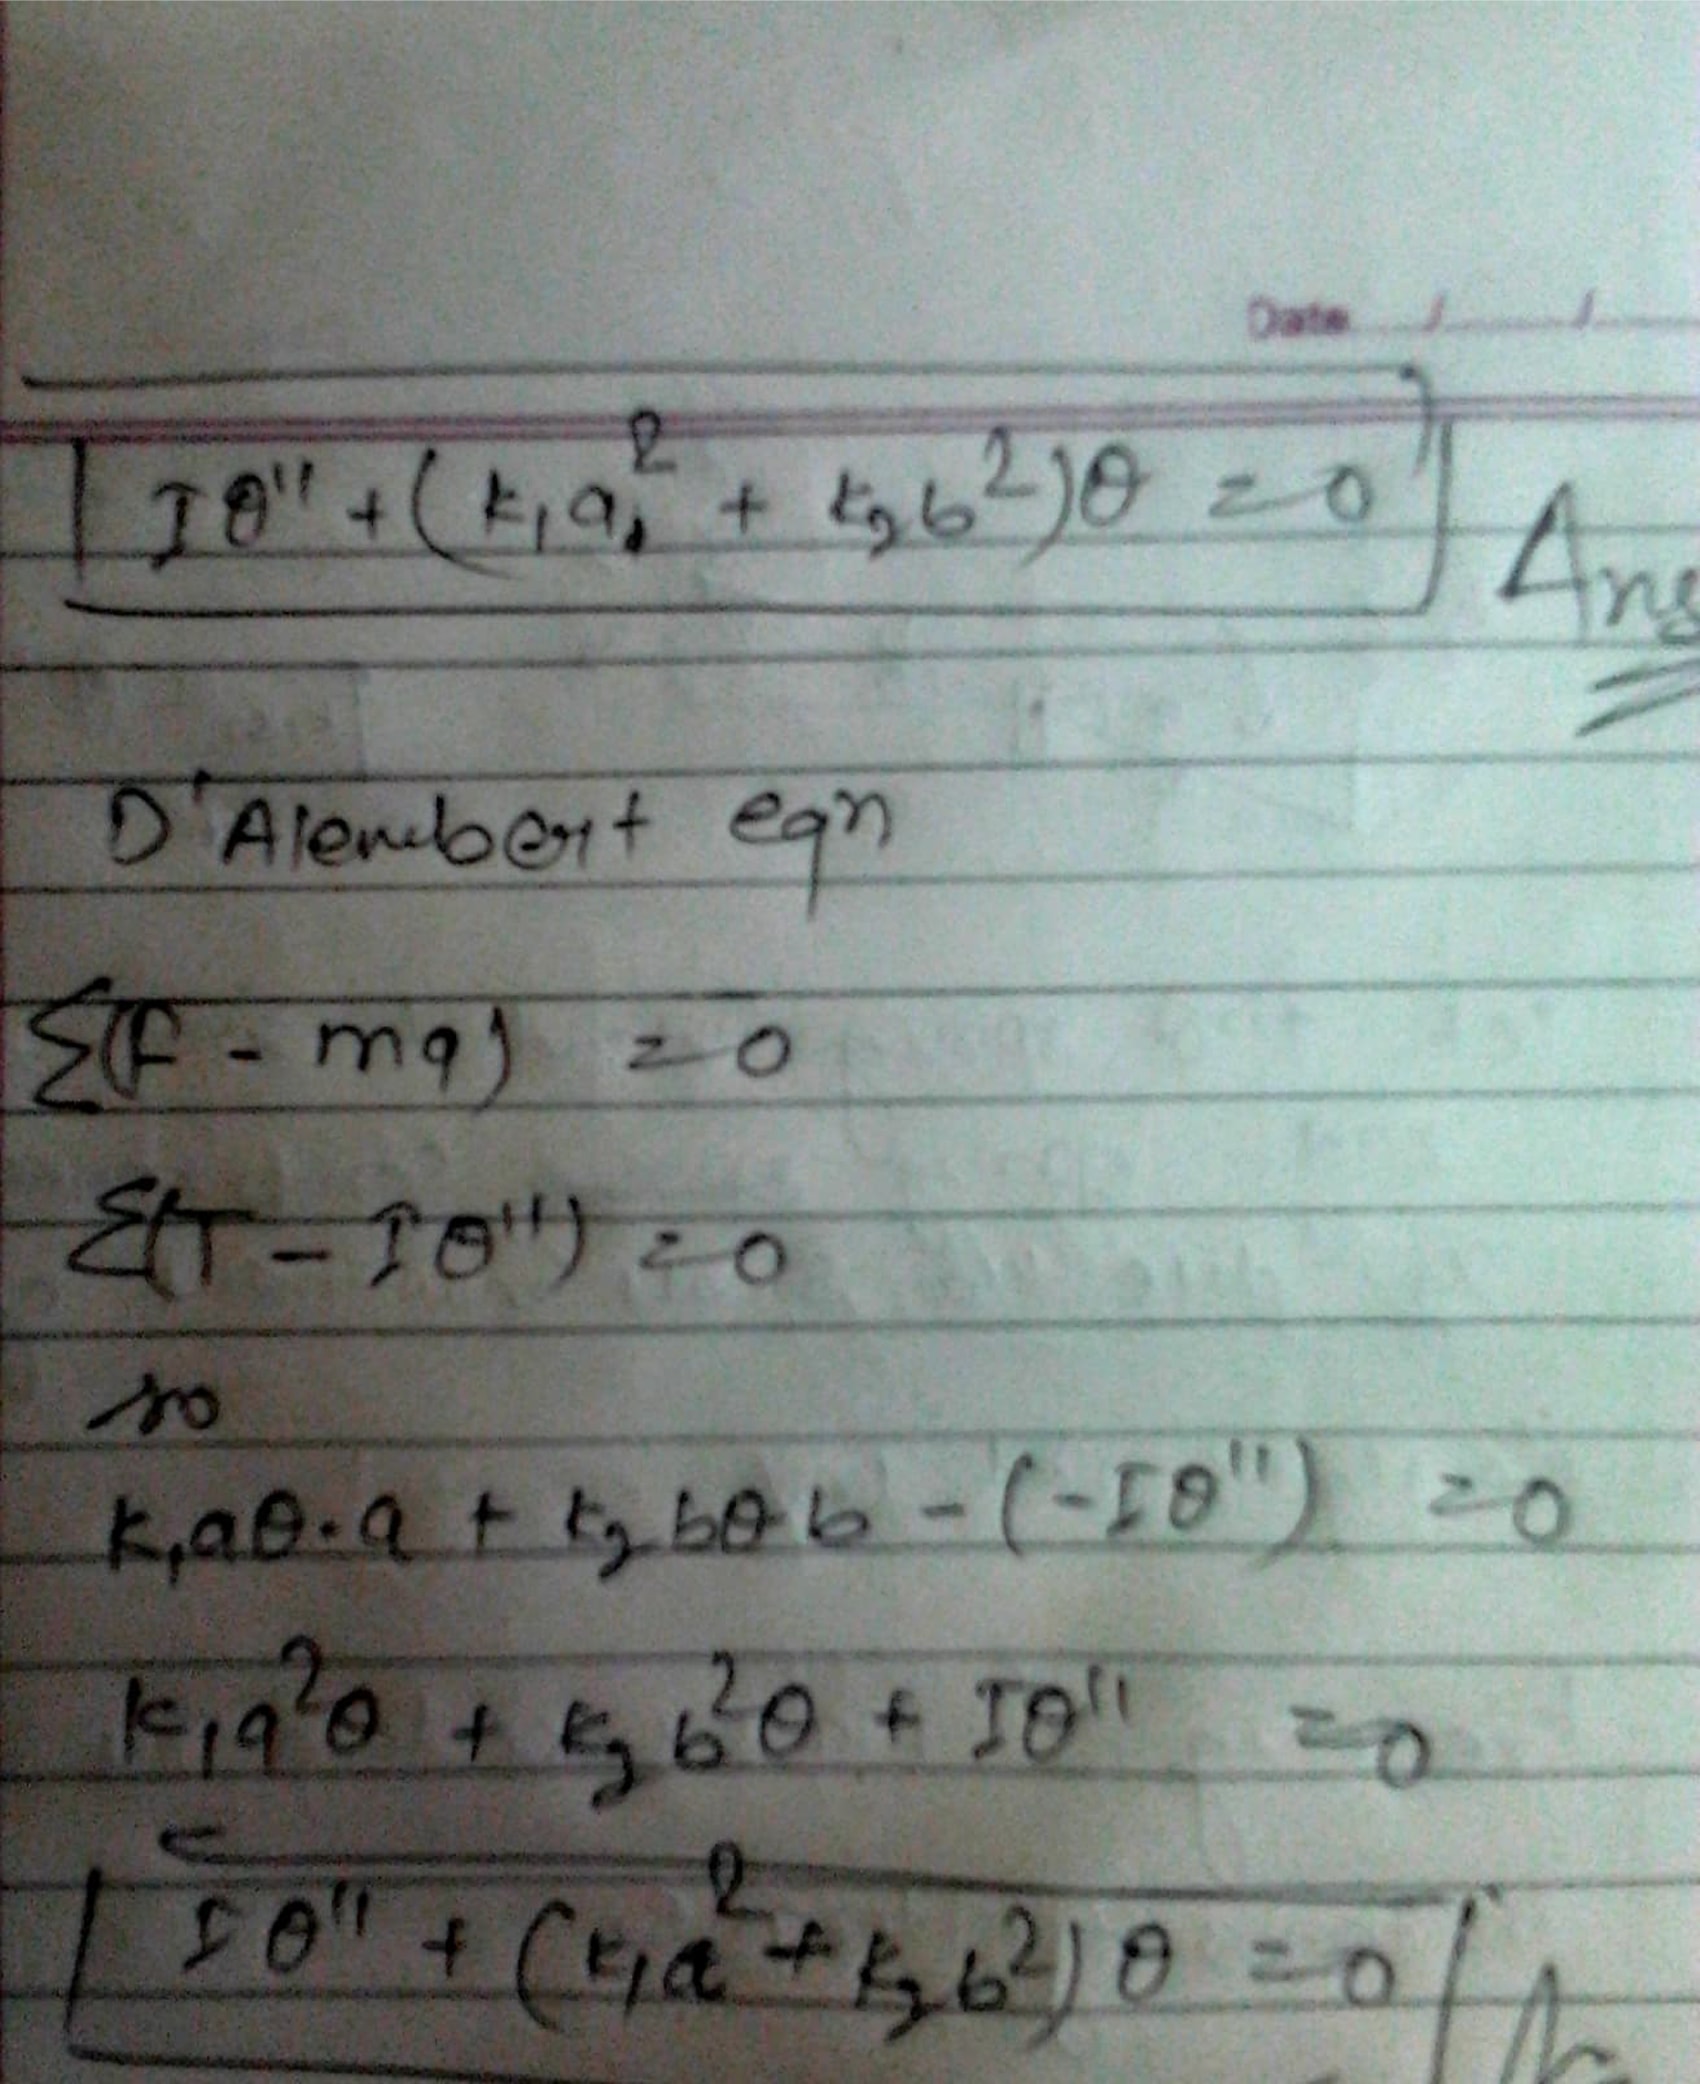 Date / /
Iθ'' + (k₁a² + k₂b²)θ = 0
D'Alembert eqn
Σ(F - ma) = 0
Σ(T - Iθ'') = 0
so
k₁aθ.a + k₂bθb - (-Iθ'') = 0
k₁a²θ + k₂b²θ + Iθ'' = 0
Iθ'' + (k₁a² + k₂b²)θ = 0